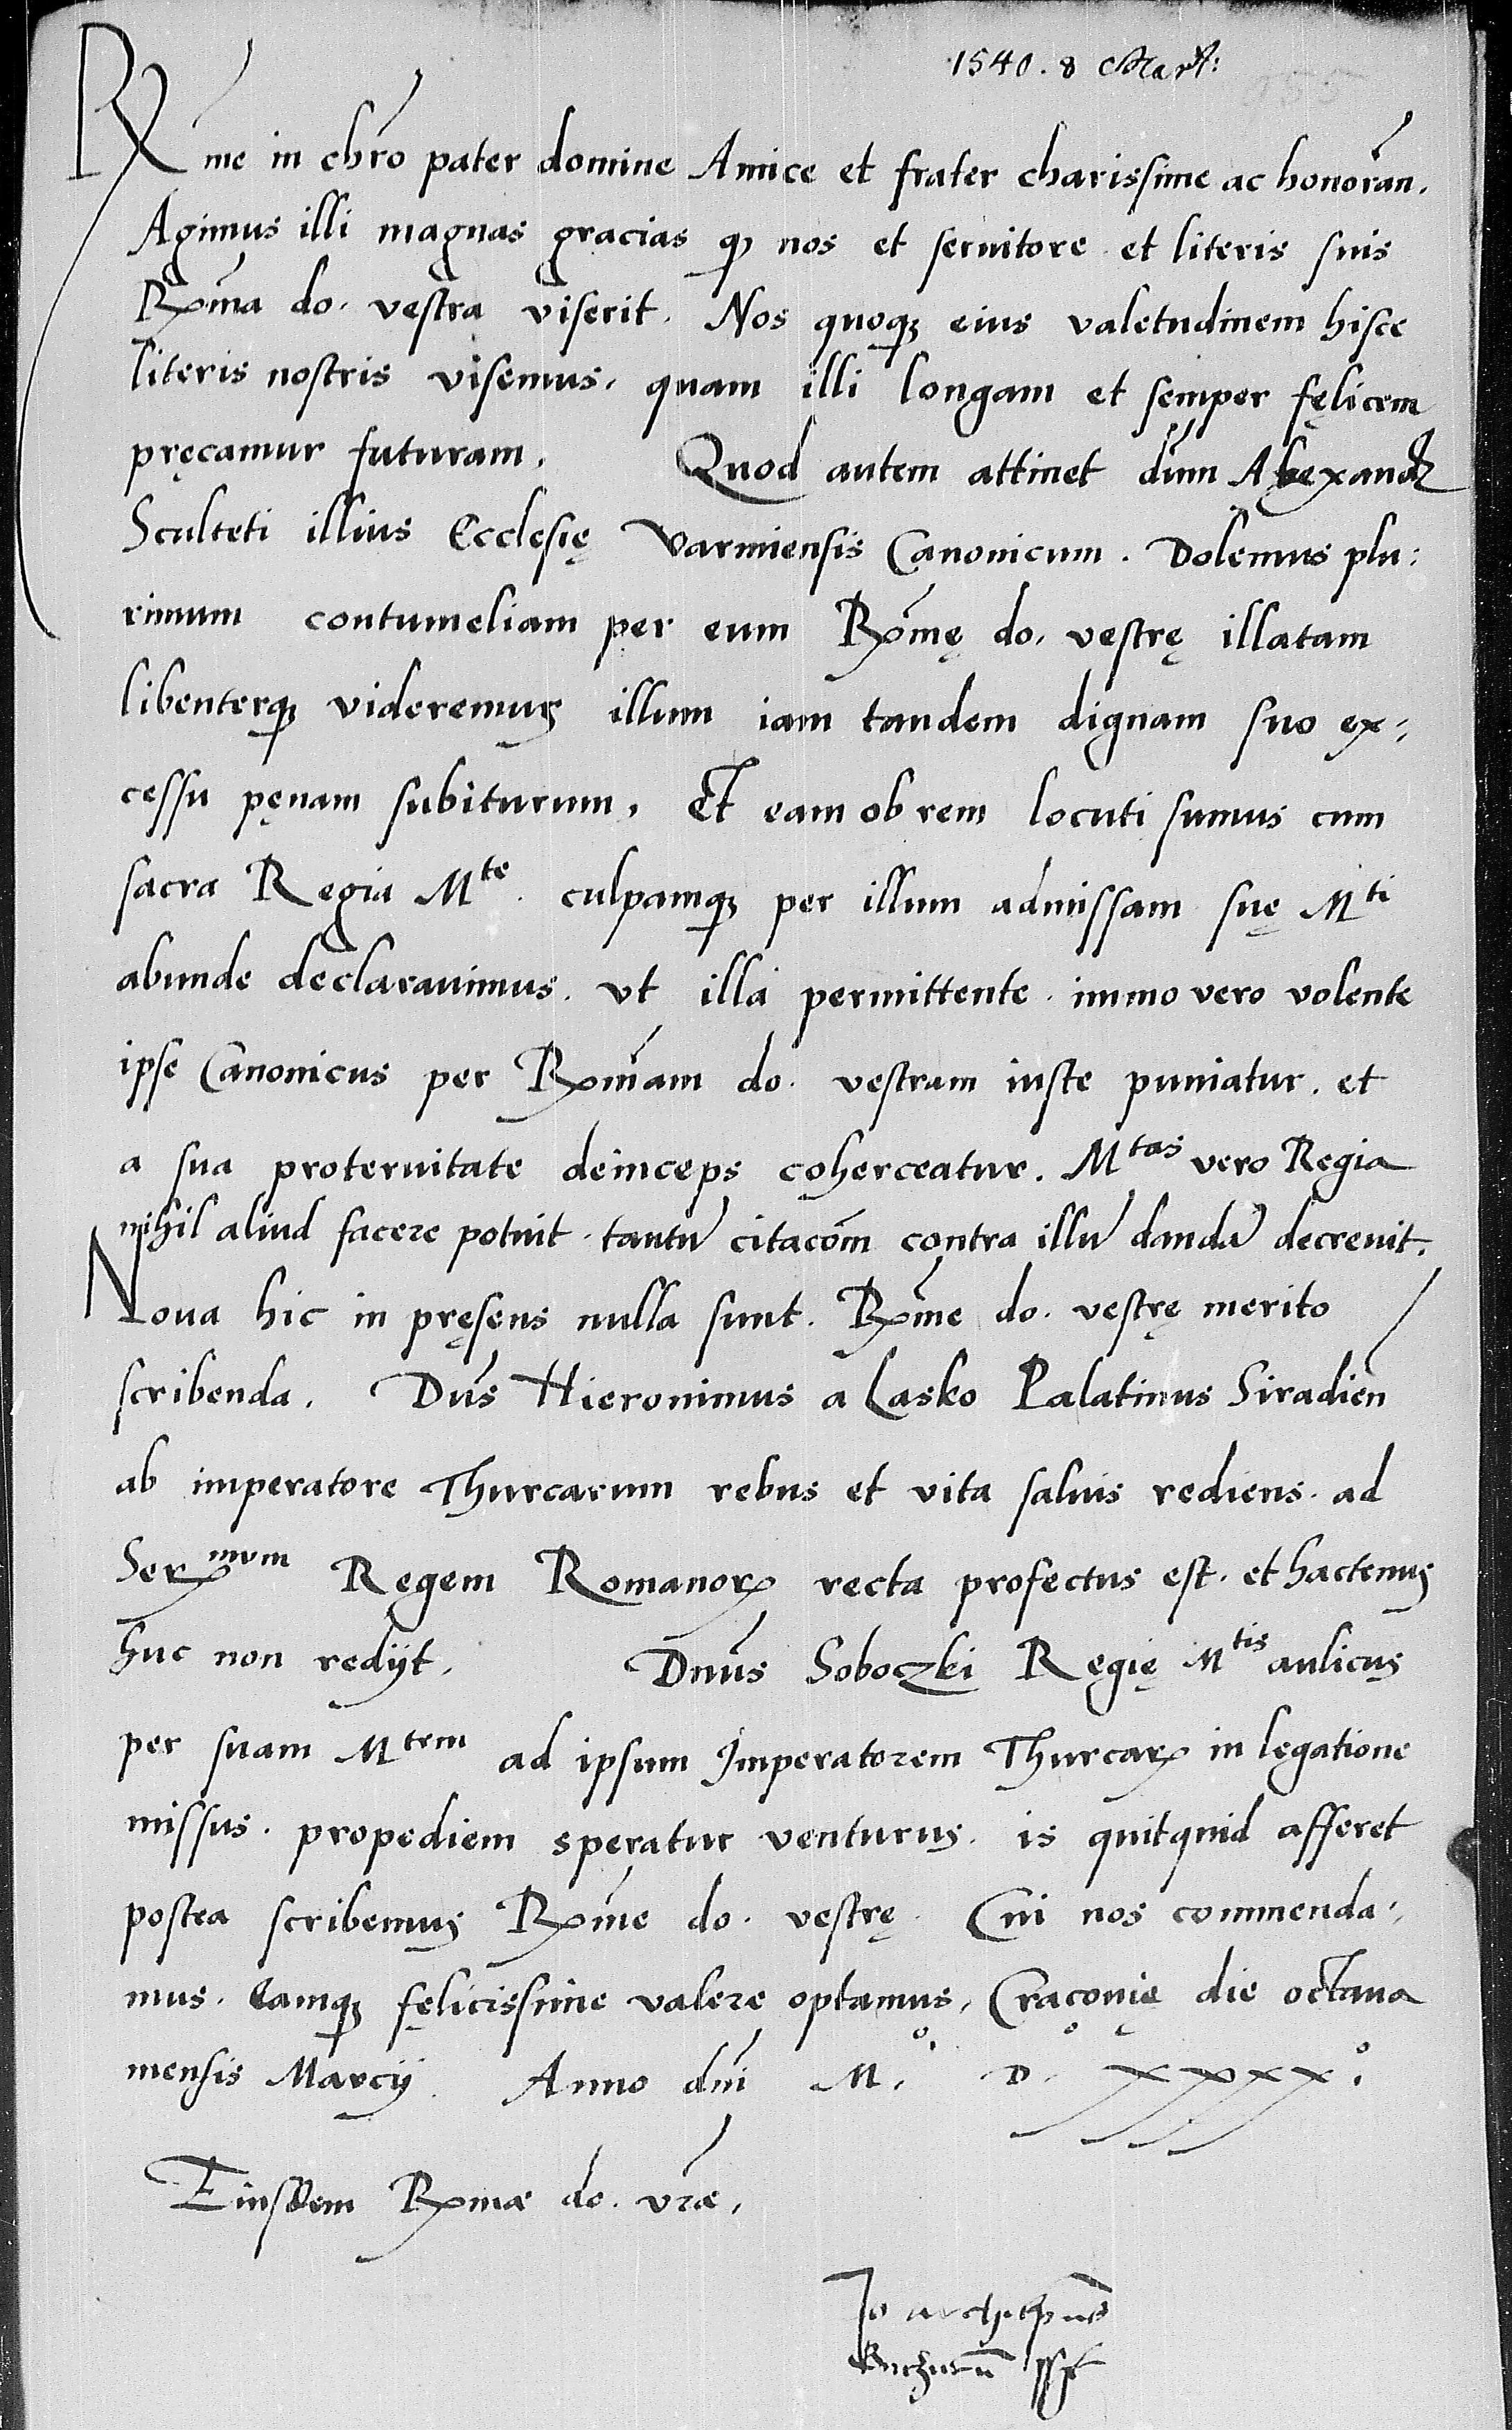 1540. 8 Mart:
Rme in chro pater domine Amice et frater charissime ac honoran.
Agimus illi magnas gracias ꝙ nos et seruitore et literis suis
Rma do. vestra viserit. Nos quoqꝫ eius valetudinem hisce
literis nostris visemus, quam illi longam et semper fęlicem
pręcamur futuram. Quod autem attinet dnum Alexandꝝ
Sculteti illius Ecclesię Varmiensis Canonicum. Dolemus plu:
rimum contumeliam per eum Rmę do. vestrę illatam
libenterqꝫ videremus illum iam tandem dignam suo ex:
cessu pęnam subiturum. Et eam ob rem locuti sumus cum
sacra Regia Mte. culpamqꝫ per illum admissam suę Mti
abunde declarauimus. vt illa permittente. immo vero volente
ipse Canonicus per Rmam do. vestram iuste puniatur. et
a sua proteruitate deinceps coherceatur. Mtas vero Regia
nihil aliud facere potuit. tantū citacōm contra illū dandā decreuit.
Noua hic in pręsens nulla sunt. Rme do. vestrę merito
scribenda. Dns Hieronimus a Lasko Palatinus Siradien
ab imperatore Thurcarum rebus et vita saluis rediens. ad
Serꝝmum Regem Romanorꝝ recta profectus est. et hactenus
huc non redijt. Dnus Soboczki Regię Mtis aulicus
per suam Mtem ad ipsum Imperatorem Thurcaꝝ in legatione
missus. propediem speratur venturus. is quitquid afferet
postea scribemus Rme do. vestrę. Cui nos commenda:
mus. Eamqꝫ fęlicissime valere optamus, Cracouię die octaua
mensis Marcij. Anno dni M.° D.° xxxx.°
Eiusdem Rmæ do. vræ,
Jo archiepus
Gneznen̄ sst